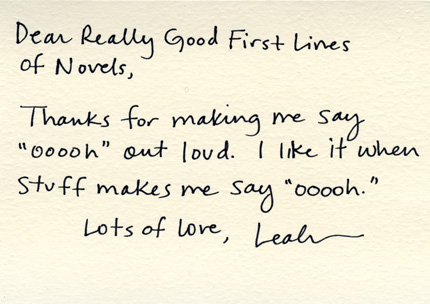 Dear Really Good First Lines
of Novels,
Thanks for making me say
"ooooh" out loud. I like it when
stuff makes me say "ooooh."
Lots of love, Leah